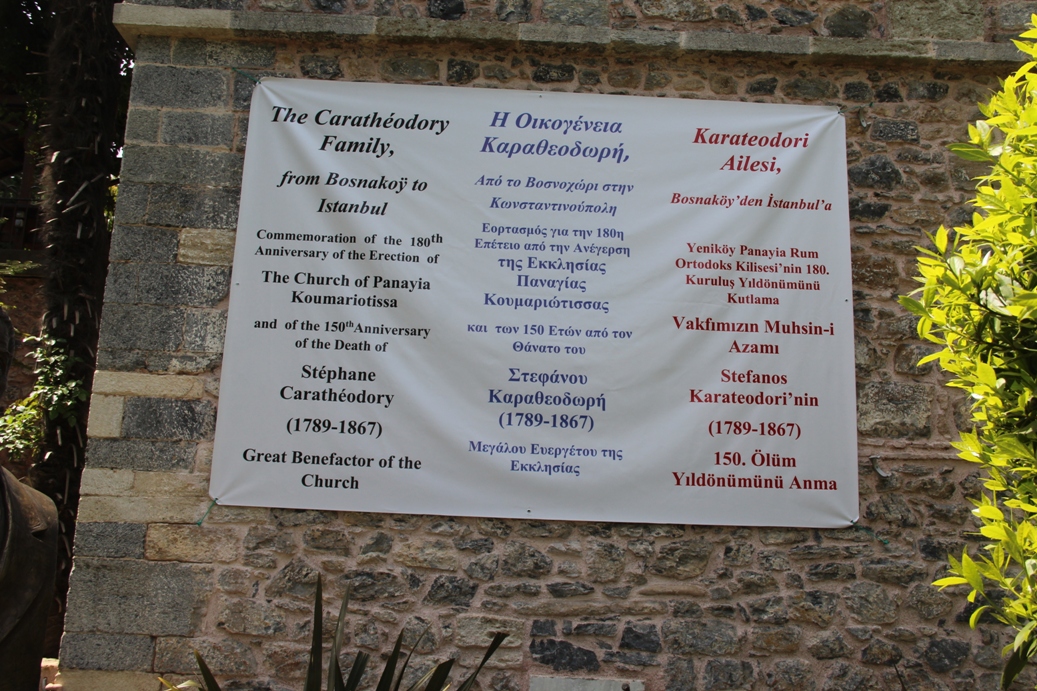 The Carathéodory
Family,
from Bosnakoÿ to
Istanbul
Commemoration of the 180th
Anniversary of the Erection of
The Church of Panayia
Koumariotissa
and of the 150th Anniversary
of the Death of
Stéphane
Carathéodory
(1789-1867)
Great Benefactor of the
Church
Η Οικογένεια
Καραθεοδωρή,
Από το Βοσνοχώρι στην
Κωνσταντινούπολη
Εορτασμός για την 180η
Επέτειο από την Ανέγερση
της Εκκλησίας
Παναγίας
Κουμαριώτισσας
και των 150 Ετών από τον
Θάνατο του
Στεφάνου
Καραθεοδωρή
(1789-1867)
Μεγάλου Ευεργέτου της
Εκκλησίας
Karateodori
Ailesi,
Bosnaköy'den İstanbul'a
Yeniköy Panayia Rum
Ortodoks Kilisesi'nin 180.
Kuruluş Yıldönümünü
Kutlama
Vakfımızın Muhsin-i
Azamı
Stefanos
Karateodori'nin
(1789-1867)
150. Ölüm
Yıldönümünü Anma